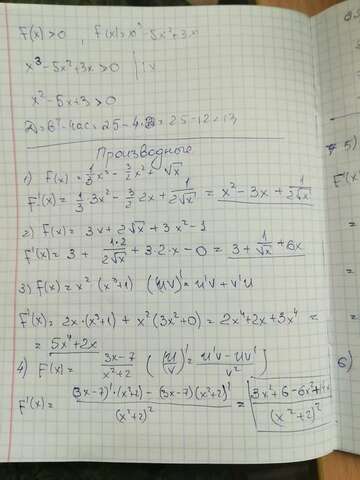 f(x) > 0, f(x) = x³ - 5x² + 3x
x³ - 5x² + 3x > 0 | : x
x² - 5x + 3 > 0
D = b² - 4ac = 25 - 4·3 = 25 - 12 = 13
Производные
1) f(x) = 1/3 x³ - 3/2 x² + √x
f'(x) = 1/3 3x² - 3/2 2x + 1/(2√x) = x² - 3x + 1/(2√x)
2) f(x) = 3x + 2√x + 3x² - 1
f'(x) = 3 + 1·2/(2√x) + 3·2·x - 0 = 3 + 1/√x + 6x
3) f(x) = x² (x³+1) (uv)' = u'v + v'u
f'(x) = 2x·(x³+1) + x²(3x²+0) = 2x⁴ + 2x + 3x⁴ =
= 5x⁴ + 2x
4) f(x) = (3x-7)/(x²+2) ((u/v)' = (u'v - uv')/v²)
f'(x) = ((3x-7)'·(x²+2) - (3x-7)(x²+2)')/(x²+2)² = (3x² + 6 - 6x² + 14x)/(x²+2)²
5)
f'(x)
6)